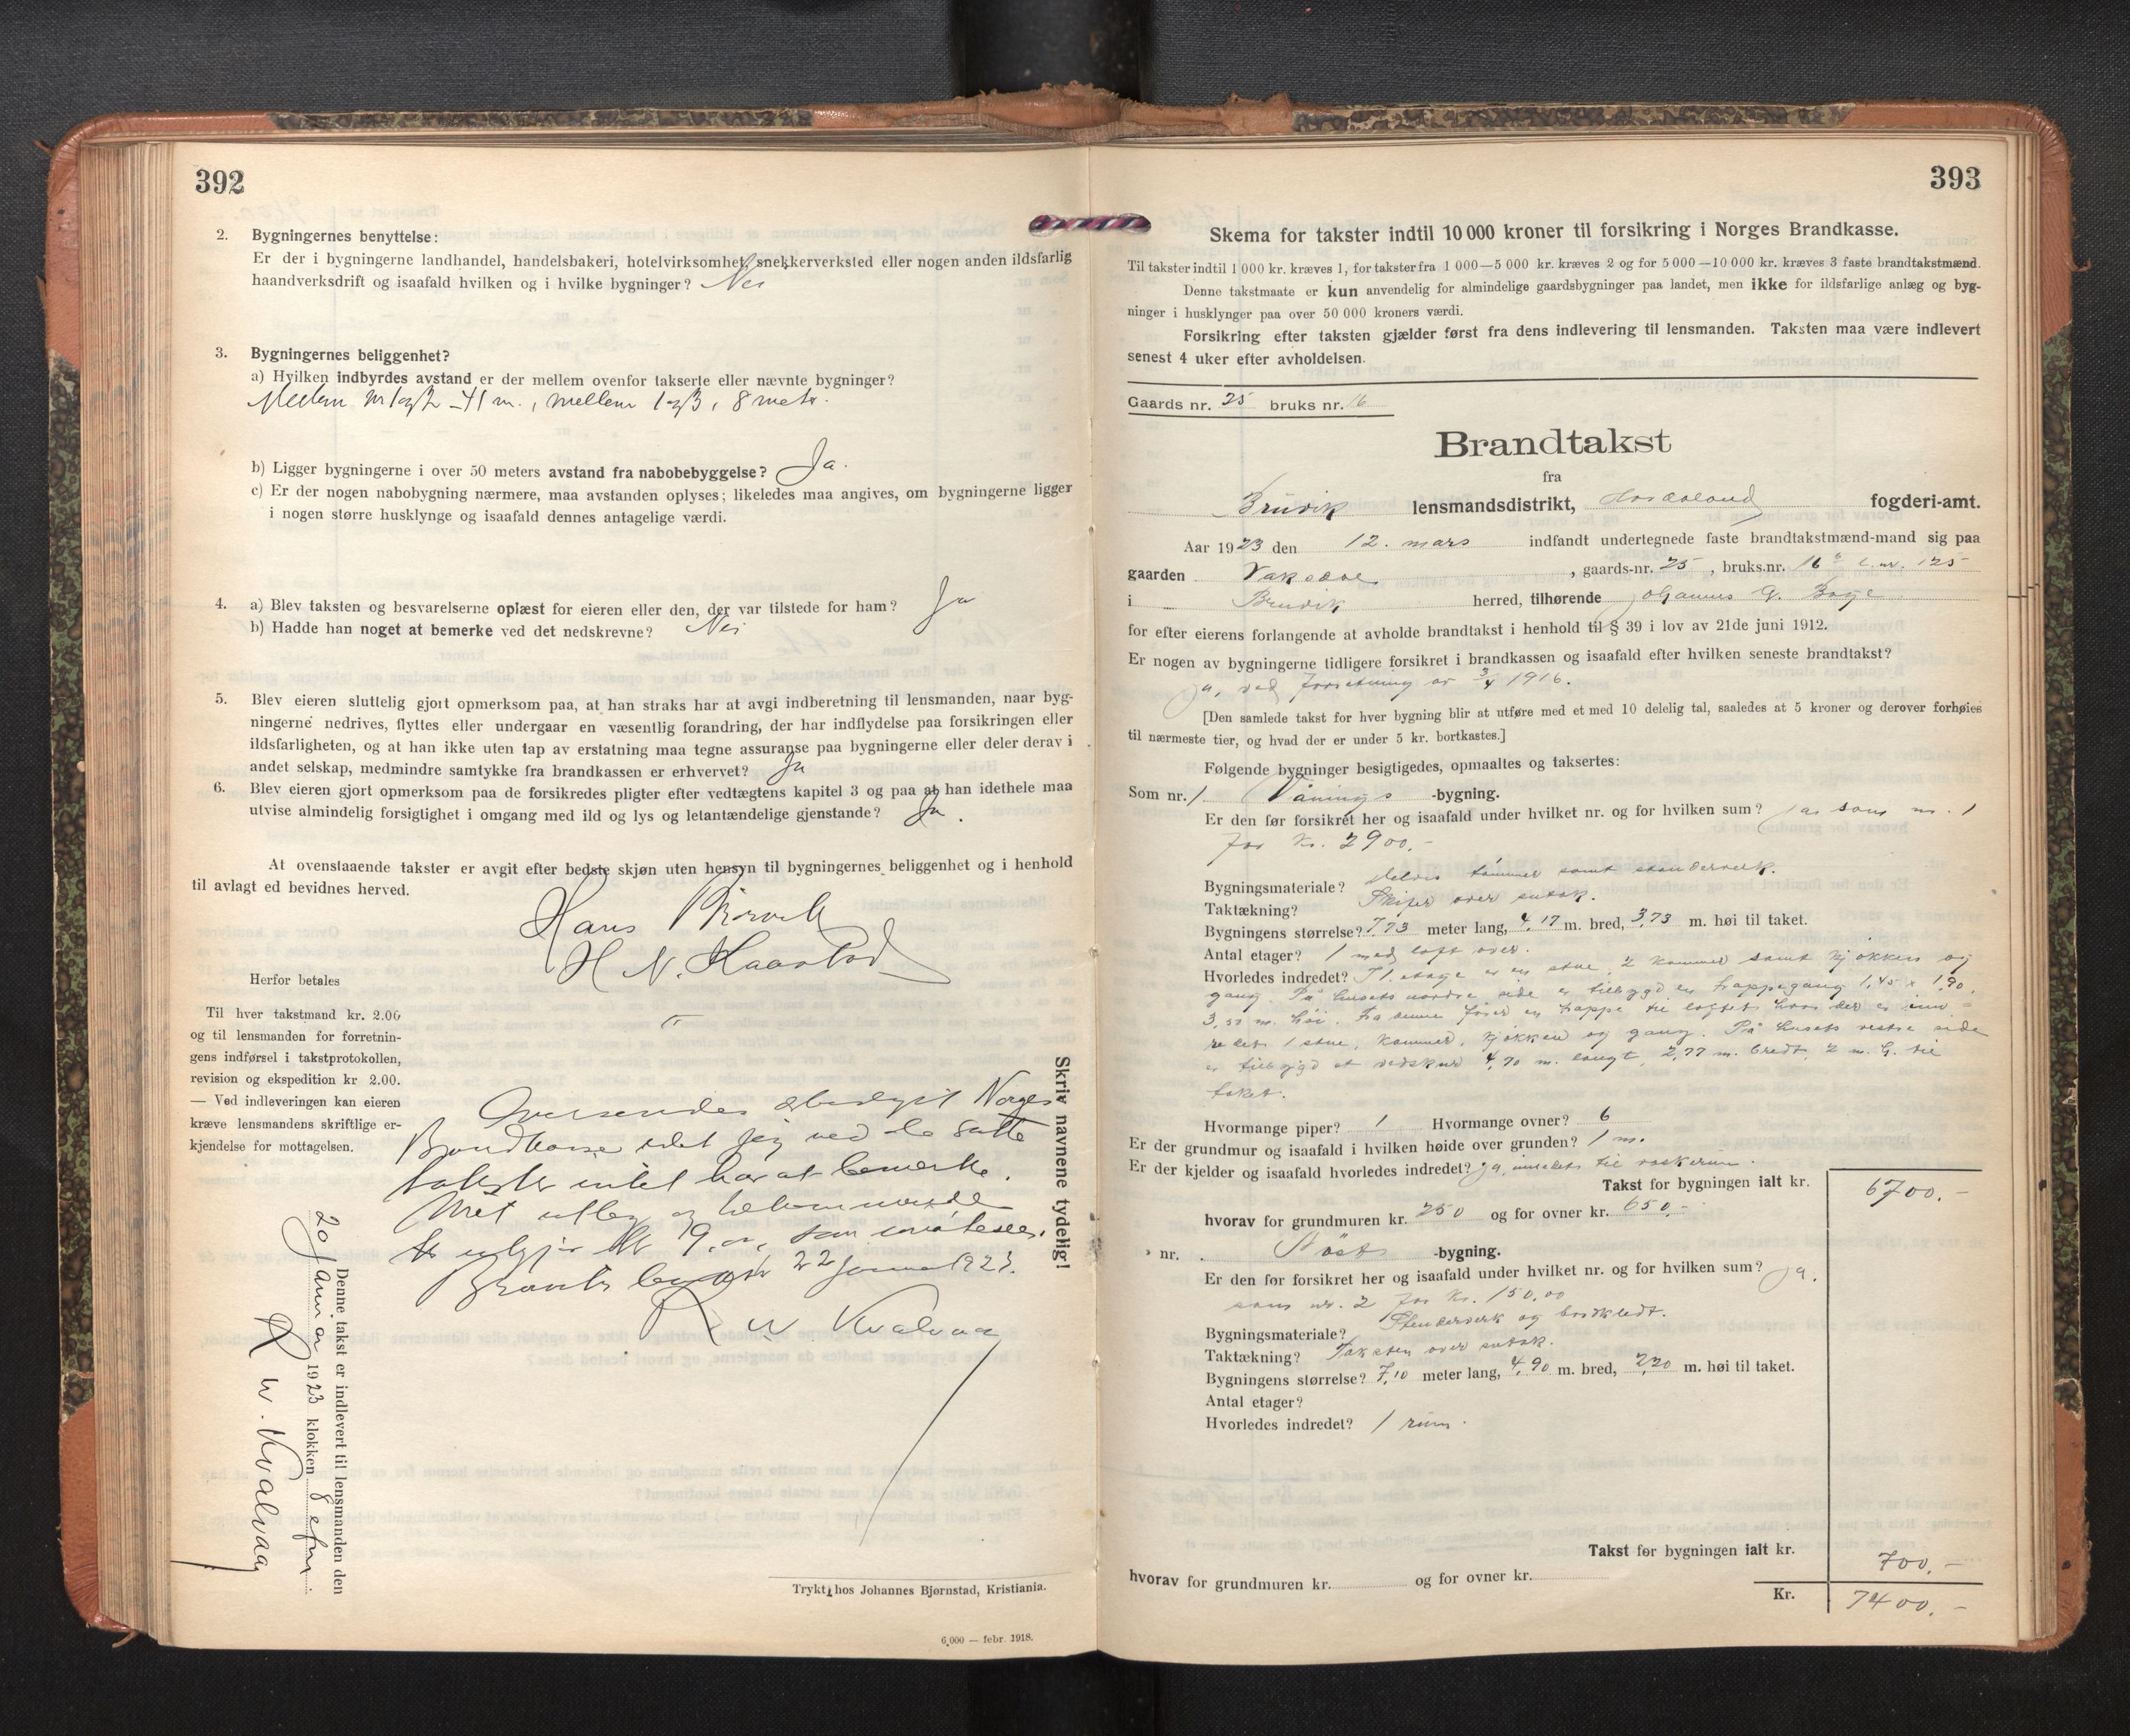 392
2. Bygningernes benyttelse:
Er der i bygningerne landhandel, handelsbakeri, hotelvirksomhet, snekkerverksted eller nogen anden ildsfarlig
haandverksdrift og isaafald hvilken og i hvilke bygninger? Nei
3. Bygningernes beliggenhet?
a) Hvilken indbyrdes avstand er der mellem ovenfor takserte eller nævnte bygninger?
Mellem nr 1 og 2 - 41 m., mellem 1 og 3, 8 meter.
b) Ligger bygningerne i over 50 meters avstand fra nabobebyggelse? Ja.
c) Er der nogen nabobygning nærmere, maa avstanden oplyses; likeledes maa angives, om bygningerne ligger
i nogen større husklynge og isaafald dennes antagelige værdi.
4. a) Blev taksten og besvarelserne oplæst for eieren eller den, der var tilstede for ham? Ja
b) Hadde han noget at bemerke ved det nedskrevne? Nei
5. Blev eieren sluttelig gjort opmerksom paa, at han straks har at avgi indberetning til lensmanden, naar byg-
ningerne nedrives, flyttes eller undergaar en væsentlig forandring, der har indflydelse paa forsikringen eller
ildsfarligheten, og at han ikke uten tap av erstatning maa tegne assuranse paa bygningerne eller deler derav i
andet selskap, medmindre samtykke fra brandkassen er erhvervet? Ja
6. Blev eieren gjort opmerksom paa de forsikredes pligter efter vedtægtens kapitel 3 og paa at han idethele maa
utvise almindelig forsigtighet i omgang med ild og lys og letantændelige gjenstande? Ja.
At ovenstaaende takster er avgit efter bedste skjøn uten hensyn til bygningernes beliggenhet og i henhold
til avlagt ed bevidnes herved.
Hans
H N. Haarstad
Herfor betales
Til hver takstmand kr. 2.00
og til lensmanden for forretnin-
gens indførsel i takstprotokollen,
revision og ekspedition kr 2.00.
— Ved indleveringen kan eieren
kræve lensmandens skriftlige er-
kjendelse for mottagelsen.
Oversendes ærbødigst Norges
Brandkasse idet jeg ved de satte
takster intet har at bemerke.
Mit utlæg og
utgjør kr 9.00, som
22 Januar 1923.
R W Kvalvaag
Skriv navnene tydelig!
Denne takst er indlevert til lensmanden den
20 Januar 1923 klokken 8 efm.
R W. Kvalvaag
Trykt hos Johannes Bjørnstad, Kristiania.
6,000 — febr. 1918.
393
Skema for takster indtil 10 000 kroner til forsikring i Norges Brandkasse.
Til takster indtil 1 000 kr. kræves 1, for takster fra 1 000—5 000 kr. kræves 2 og for 5 000—10 000 kr. kræves 3 faste brandtakstmænd.
Denne takstmaate er kun anvendelig for almindelige gaardsbygninger paa landet, men ikke for ildsfarlige anlæg og byg-
ninger i husklynger paa over 50 000 kroners værdi.
Forsikring efter taksten gjælder først fra dens indlevering til lensmanden. Taksten maa være indlevert
senest 4 uker efter avholdelsen.
Gaards nr. 25 bruks nr. 16
Brandtakst
fra
Bruvik lensmandsdistrikt, Hordaland fogderi-amt.
Aar 1923 den 12. mars indfandt undertegnede faste brandtakstmænd-mand sig paa
gaarden Vaksdal, gaards-nr. 25, bruks.nr. 16 l.nr. 125
i Bruvik herred, tilhørende Johannes G. Boge
for efter eierens forlangende at avholde brandtakst i henhold til § 39 i lov av 21de juni 1912.
Er nogen av bygningerne tidligere forsikret i brandkassen og isaafald efter hvilken seneste brandtakst?
Ja, ved forretning av 3/4 1916.
[Den samlede takst for hver bygning blir at utføre med et med 10 delelig tal, saaledes at 5 kroner og derover forhøies
til nærmeste tier, og hvad der er under 5 kr. bortkastes.]
Følgende bygninger besigtigedes, opmaaltes og taksertes:
Som nr. 1 Vånings -bygning.
Er den før forsikret her og isaafald under hvilket nr. og for hvilken sum? Ja som nr. 1
for kr. 2900.-
Bygningsmateriale? delvis tømmer samt stenderverk.
Taktækning? Skifer over sutak.
Bygningens størrelse? 7,73 meter lang, 4,17 m. bred, 3,73 m. høi til taket.
Antal etager? 1 med loft over.
Hvorledes indredet? I 1. etage er en stue, 2 kammer samt kjøkken og
gang. På husets nordre side er tilbygd en trappegang 1,45 x 1,90,
m. høi. Fra denne fører en trappe til loftet hvor der er inn-
redet 1 stue, kammer, kjøkken og gang. På husets vestre side
er tilbygd et vedskur 4,70 m. langt, 2,77 m. bredt, 2 m. h. til
taket.
Hvormange piper? 1 Hvormange ovner? 6
Er der grundmur og isaafald i hvilken høide over grunden? 1 m.
Er der kjelder og isaafald hvorledes indredet? Ja, innredet til vaskerum.
Takst for bygningen ialt kr. 6700.-
hvorav for grundmuren kr. 250 og for ovner kr. 650.-
» nr. Nøst -bygning.
Er den før forsikret her og isaafald under hvilket nr. og for hvilken sum? Ja.
som nr. 2 for kr. 150.00
Bygningsmateriale? Stenderverk og bordkledt.
Taktækning? Taksten over sutak.
Bygningens størrelse? 7,10 meter lang, 4,90 m. bred, 2,20 m. høi til taket.
Antal etager?
Hvorledes indredet? 1 rum.
Takst for bygningen ialt kr. 700.-
hvorav for grundmuren kr. og for ovner kr.
Kr. 7400.-